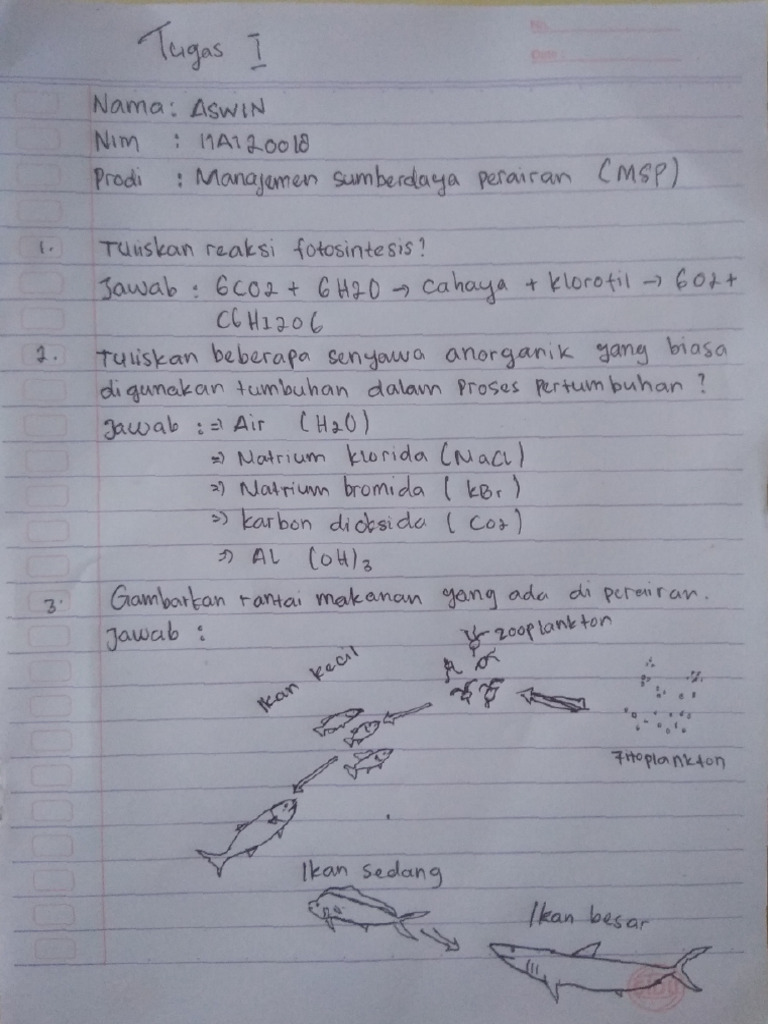 No.
Date.
Tugas I
Nama: ASWIN
Nim : I1A120018
Prodi : Manajemen sumberdaya perairan (MSP)
1. Tuliskan reaksi fotosintesis?
Jawab : 6CO2 + 6H2O → Cahaya + klorofil → 6O2 +
C6H12O6
2. Tuliskan beberapa senyawa anorganik yang biasa
digunakan tumbuhan dalam proses pertumbuhan ?
Jawab : ⇒ Air (H2O)
⇒ Natrium klorida (NaCl)
⇒ Natrium bromida ( kBr )
⇒ karbon dioksida ( CO2 )
⇒ AL (OH)3
3. Gambarkan rantai makanan yang ada di perairan.
Jawab :
zooplankton
Ikan kecil
Fitoplankton
Ikan sedang
Ikan besar